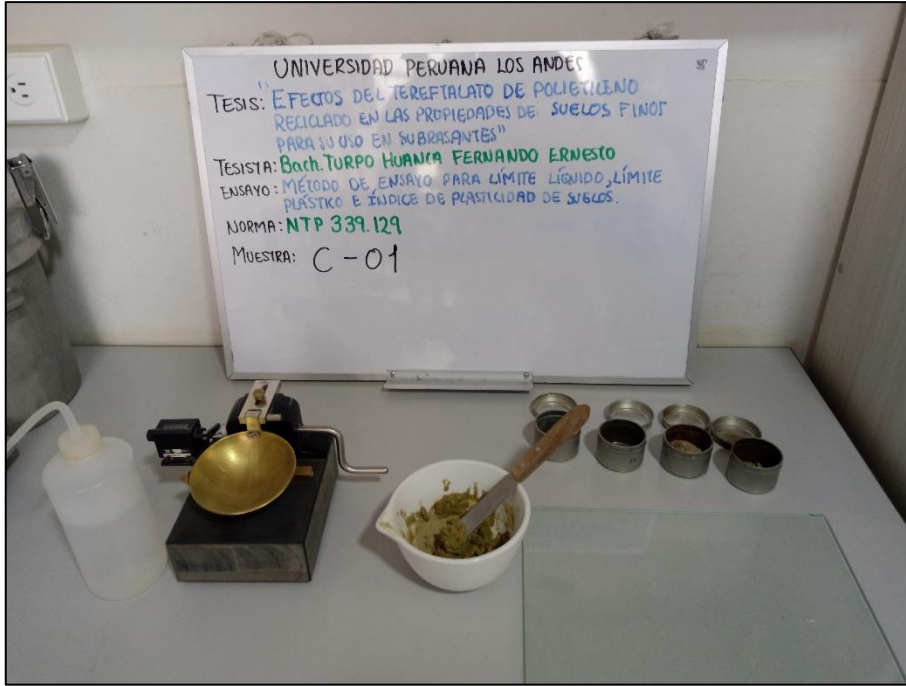 UNIVERSIDAD PERUANA LOS ANDES
TESIS: "EFECTOS DEL TEREFTALATO DE POLIETILENO
RECICLADO EN LAS PROPIEDADES DE SUELOS FINOS
PARA SU USO EN SUBRASANTES"
TESISTA: Bach. TURPO HUANCA FERNANDO ERNESTO
ENSAYO: MÉTODO DE ENSAYO PARA LÍMITE LÍQUIDO, LÍMITE
PLÁSTICO E ÍNDICE DE PLASTICIDAD DE SUELOS.
NORMA: NTP 339.129
MUESTRA: C-01